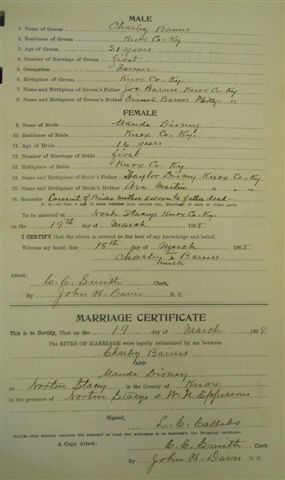 MALE
1. Name of Groom Charley Barnes
2. Residence of Groom Knox Co. Ky.
3. Age of Groom 21 years
4. Number of Marriage of Groom first
5. Occupation Farmer
6. Birthplace of Groom Knox Co. Ky.
7. Name and Birthplace of Groom's Father Joe Barnes Knox Co. Ky
8. Name and Birthplace of Groom's Mother Barnes " "
FEMALE
9. Name of Bride Maude Disney
10. Residence of Bride Knox Co. Ky.
11. Age of Bride 16 years
12. Number of Marriage of Bride first
13. Birthplace of Bride Knox Co. Ky.
14. Name and Birthplace of Bride's Father Taylor Disney Knox Co. Ky
15. Name and Birthplace of Bride's Mother Martin " " "
16. Remarks Consent of Brides mother father dead
To be married at Stacys Knox Co. Ky.
on the 19th day of March 1908
I CERTIFY that the above is correct to the best of my knowledge and belief.
Witness my hand, this 18th day of March 1908
Charley x Barnes
mark
Attest:
C. C. Smith Clerk,
By John H. Davis D. C.
MARRIAGE CERTIFICATE
This is to Certify, That on the 19 day of March 1908
The RITES OF MARRIAGE were legally solemnized by me between
Charley Barnes
AND
Maude Disney
at Norton Stacy in the County of Knox
in the presence of Norton Stacy & W. N.
Signed,
L. C.
A Copy Attest: C. C. Smith Clerk
By John H. Davis D C